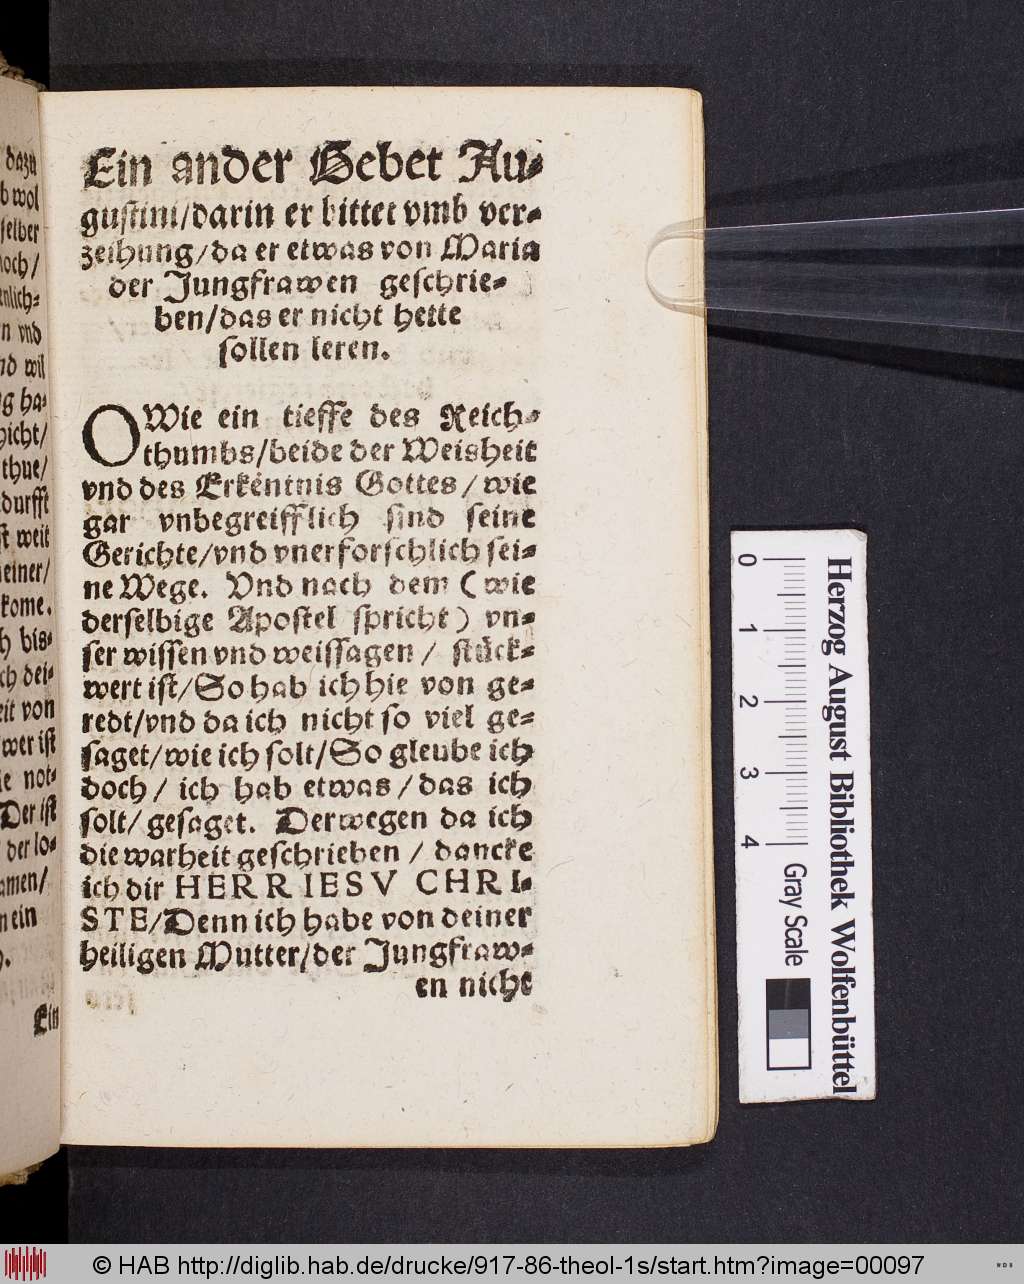 dazu
b wol
selber
noch/
nlich⸗
n vnd
nd wil
g ha⸗
nicht/
thue/
durfft
st weit
einer/
kome.
h bis⸗
ch dei⸗
eit von
wer ist
ie not⸗
Der ist
der lo⸗
amen/
n ein
Ein
Ein ander Gebet Au⸗
gustini/darin er bittet vmb ver⸗
zeihung/da er etwas von Maria
der Jungfrawen geschrie⸗
ben/das er nicht hette
sollen leren.
O Wie ein tieffe des Reich⸗
thumbs/beide der Weisheit
vnd des Erkẽntnis Gottes/wie
gar vnbegreifflich sind seine
Gerichte/vnd vnerforschlich sei⸗
ne Wege. Vnd nach dem (wie
derselbige Apostel spricht) vn⸗
ser wissen vnd weissagen/ stück⸗
wert ist/So hab ich hie von ge⸗
redt/vnd da ich nicht so viel ge⸗
saget/wie ich solt/So gleube ich
doch/ ich hab etwas/das ich
solt/gesaget. Derwegen da ich
die warheit geschrieben/ dancke
ich dir HERR IESV CHRI⸗
STE/Denn ich habe von deiner
heiligen Mutter/der Jungfraw⸗
en nicht
0 1 2 3 4
Gray Scale
Herzog August Bibliothek Wolfenbüttel
© HAB http://diglib.hab.de/drucke/917-86-theol-1s/start.htm?image=00097